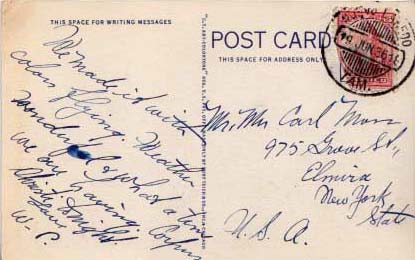 THIS SPACE FOR WRITING MESSAGES
We made it with
colors flying. Weather
wonderful & what a time
we are having. Corpus
Christi tonight
POST CARD
THIS SPACE FOR ADDRESS ONLY
Mr. Mrs Carl Moss
975 Grove St.,
Elmira
New York
State
U. S. A.
JUN. 36
TAM.